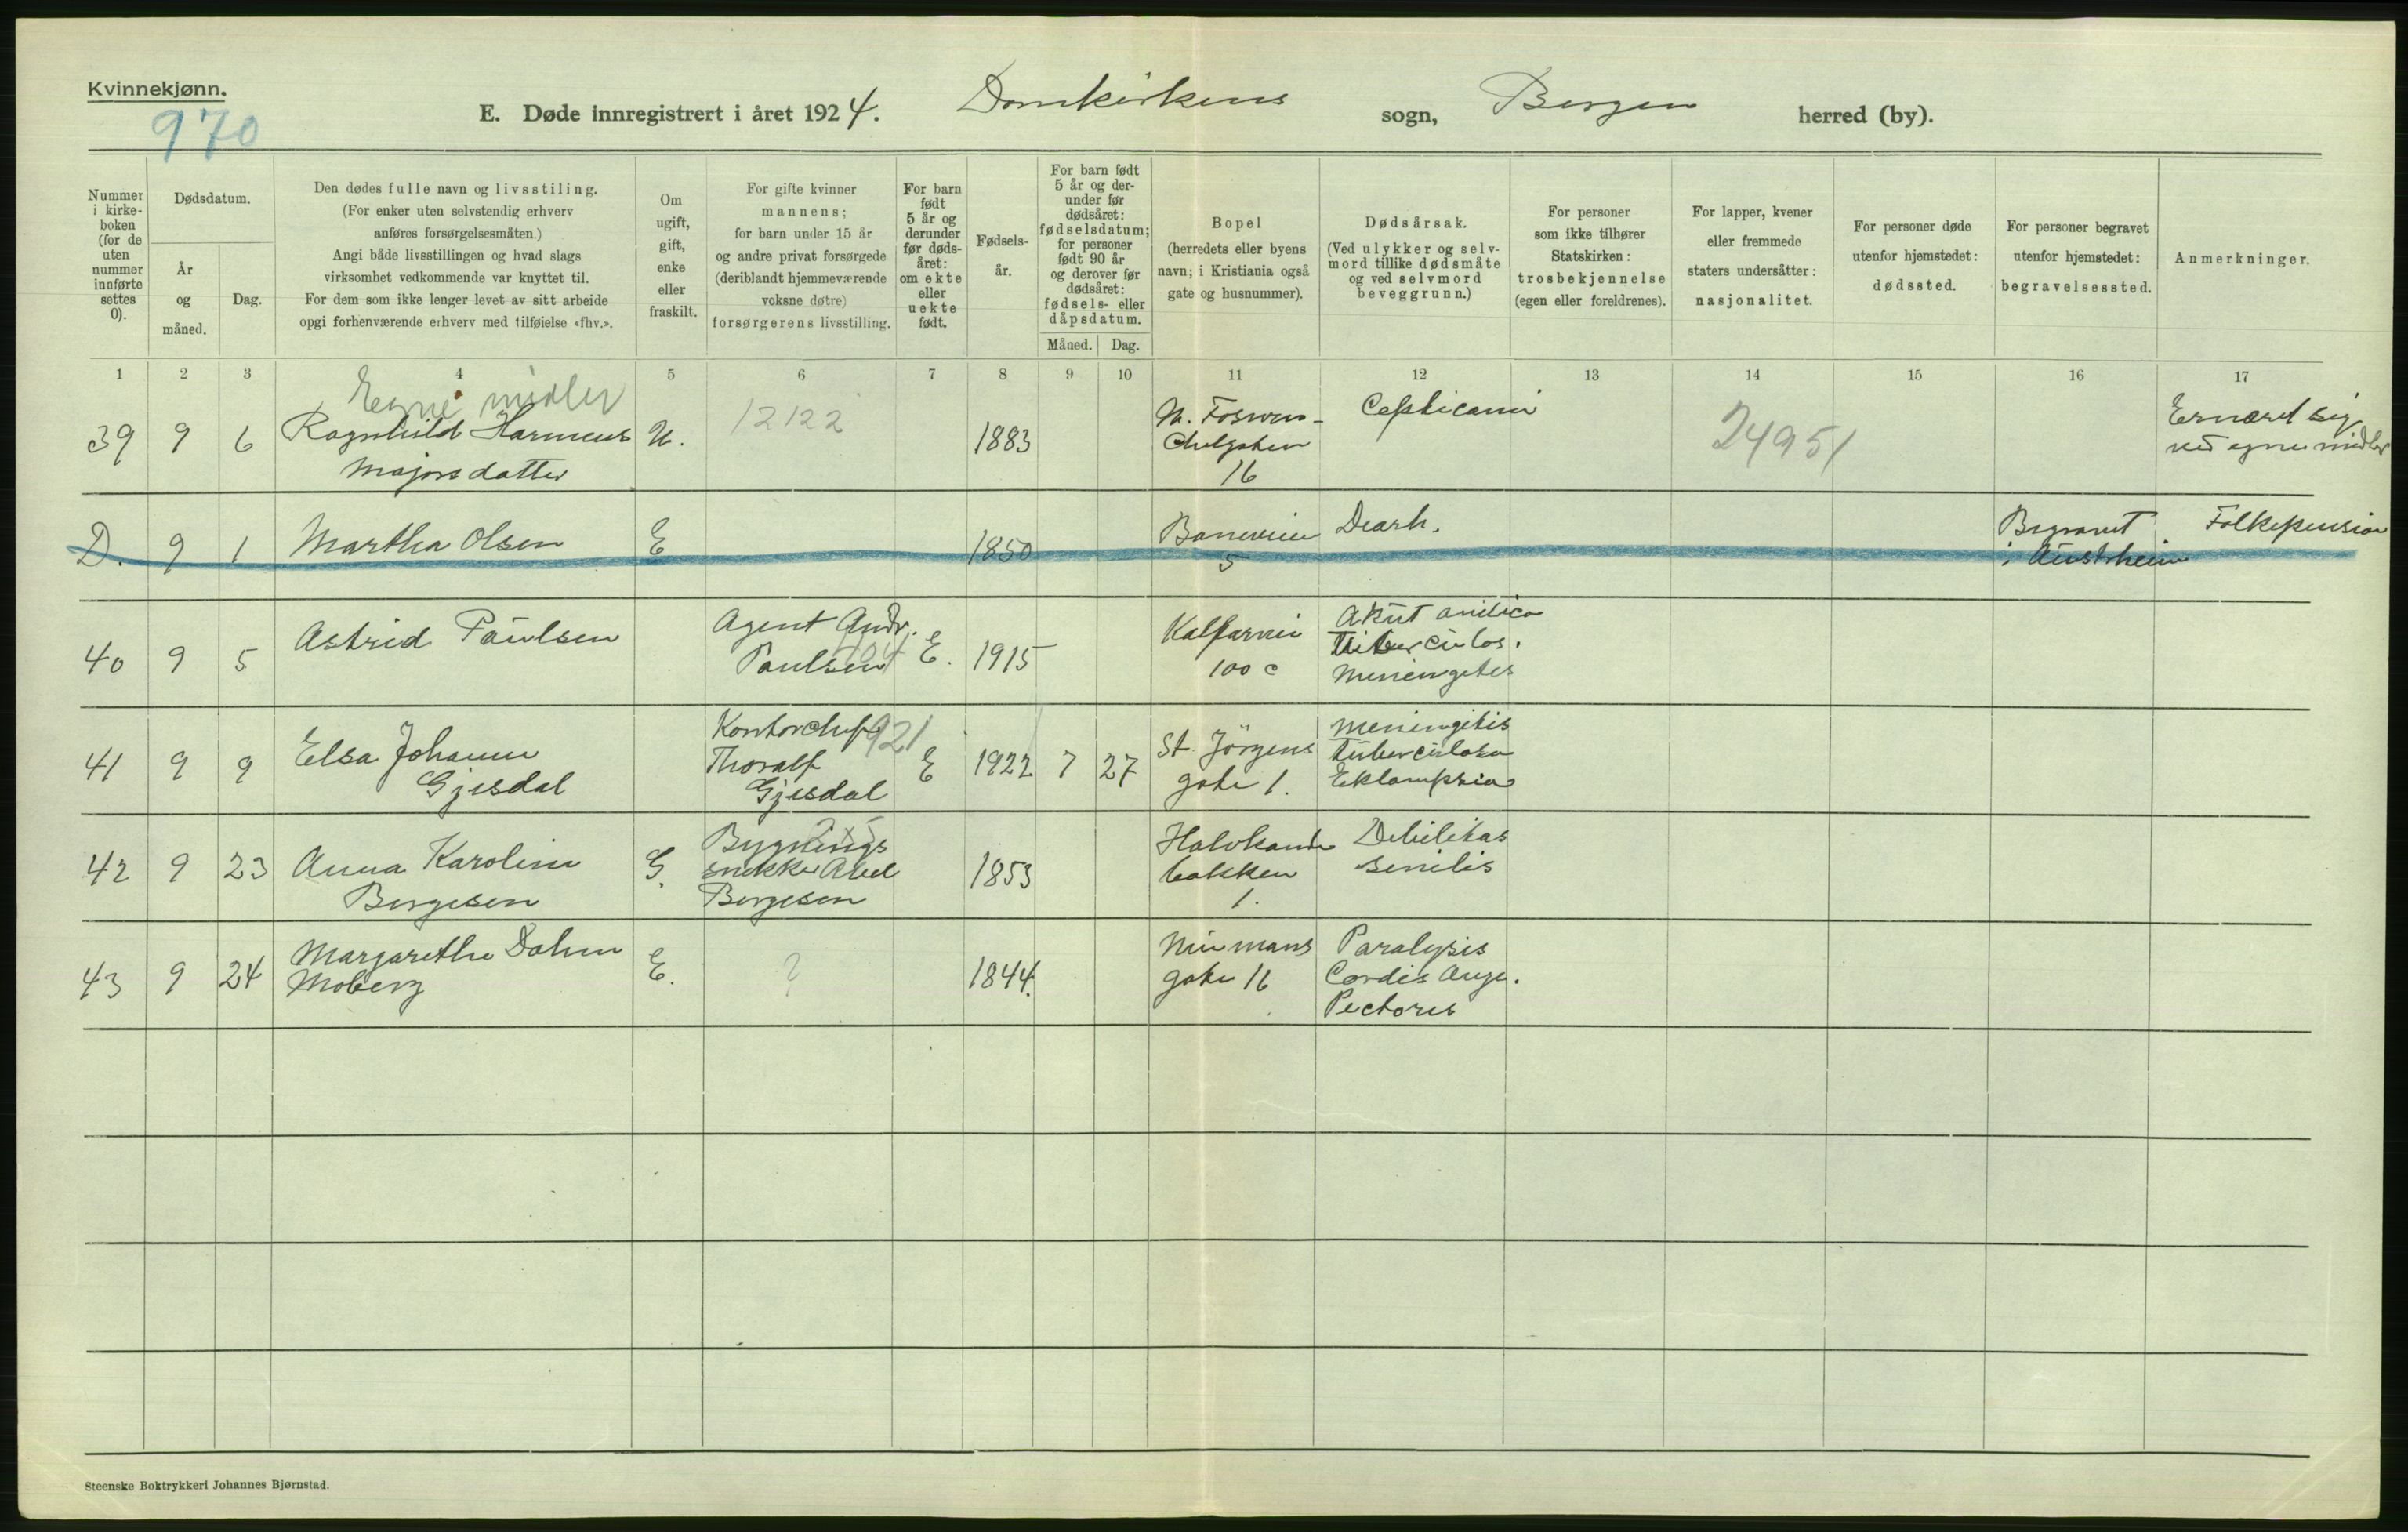 Kvinnekjønn.
970
E. Døde innregistrert i året 1924. Domkirkens sogn, Bergen herred (by).
Nummer i kirke-boken (for de uten nummer innførte settes 0).
Dødsdatum.
År og måned.
Dag.
Den dødes fulle navn og livsstiling.
(For enker uten selvstendig erhverv
anføres forsørgelsesmåten.)
Angi både livsstillingen og hvad slags
virksomhet vedkommende var knyttet til.
For dem som ikke lenger levet av sitt arbeide
opgi forhenværende erhverv med tilføielse «fhv.».
Om
ugift,
gift,
enke
eller
fraskilt.
For gifte kvinner
mannens;
for barn under 15 år
og andre privat forsørgede
(deriblandt hjemmeværende
voksne døtre)
forsørgerens livsstilling.
For barn
født
5 år og
derunder
før døds-
året:
om ekte
eller
uekte
født.
Fødsels-
år.
For barn født
5 år og der-
under før
dødsåret:
fødselsdatum;
for personer
født 90 år
og derover før
dødsåret:
fødsels- eller
dåpsdatum.
Måned. Dag.
Bopel
(herredets eller byens
navn; i Kristiania også
gate og husnummer).
Dødsårsak.
(Ved ulykker og selv-
mord tillike dødsmåte
og ved selvmord
beveggrunn.)
For personer
som ikke tilhører
Statskirken:
trosbekjennelse
(egen eller foreldrenes).
For lapper, kvener
eller fremmede
staters undersåtter:
nasjonalitet.
For personer døde
utenfor hjemstedet:
dødssted.
For personer begravet
utenfor hjemstedet:
begravelsessted.
Anmerkninger.
1 2 3 4 5 6 7 8 9 10 11 12 13 14 15 16 17
Egne midler
39 9 6 Ragnhild U. 12122 1883 24951 Ernæret sig
Majorsdatter 16 ved egne midler
D. 9 1 Martha Olsen E 1850 Baneveien 5 Begravet Folkepension
i Austrheim
40 9 5 Astrid Paulsen Agent Andr. Kalfarvei Akut
Paulsen 704 E. 1915 100 c Tuberculos.
Meningites
41 9 9 Elsa Johanne Kontorchef 921 St. Jörgens Meningitis
Gjesdal Thoralf E 1922 7 27 gate 1. tuberculosa
Gjesdal Eklampsia
42 9 23 Anna Karoline G. Bygnings 1853 Debilitas
Bergesen snekker Abel bakken senilis
Bergesen 1.
43 9 24 Margarethe Dahm E. ? 1844. Paralysis
Moberg gate 16 Cordis Ang.
Pectoris
Steenske Boktrykkeri Johannes Bjørnstad.